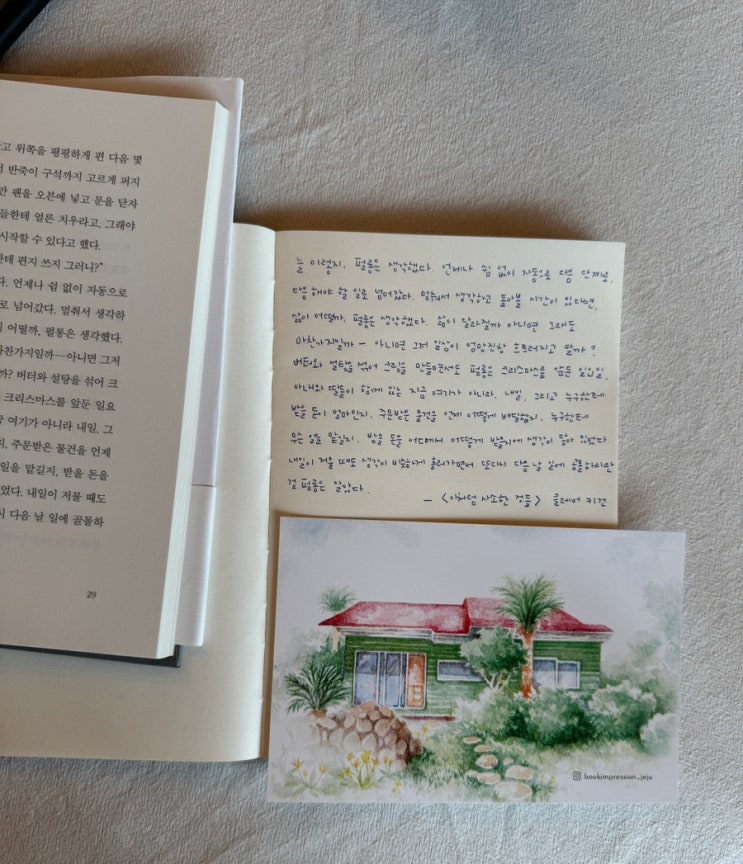 고 위쪽을 평평하게 편 다음 몇
반죽이 구석까지 고르게 퍼지
팬을 오븐에 넣고 문을 닫자
들한테 얼른 치우라고, 그래야
시작할 수 있다고 했다.
한테 편지 쓰지 그러니?"
다. 언제나 쉼 없이 자동으로
로 넘어갔다. 멈춰서 생각하
어떨까, 펄롱은 생각했다.
마찬가지일까—아니면 그저
까? 버터와 설탕을 섞어 크
크리스마스를 앞둔 일요
여기가 아니라 내일, 그
지, 주문받은 물건을 언제
일을 맡길지, 받을 돈을
었다. 내일이 저물 때도
시 다음 날 일에 골몰하
29
늘 이렇지, 펄롱은 생각했다. 언제나 쉼 없이 자동으로 다음 단계로,
다음 해야 할 일로 넘어갔다. 멈춰서 생각하고 돌아볼 시간이 있다면,
삶이 어떨까, 펄롱은 생각했다. 삶이 달라질까 아니면 그래도
마찬가지일까 — 아니면 그저 일상이 엉망진창 흐트러지고 말까?
버터와 설탕을 섞어 크림을 만들면서도 펄롱은 크리스마스를 앞둔 일요일,
아내와 딸들이 함께 있는 지금 여기가 아니라, 내일, 그리고 누구한테
받을 돈이 얼마인지, 주문받은 물건을 언제 어떻게 배달할지, 누구한테
무슨 일을 맡길지, 받을 돈을 어디에서 어떻게 받을지에 생각이 닿아 있었다.
내일이 저물 때도 생각이 비슷하게 흘러가면서 또다시 다음 날 일에 골몰하리란
걸 펄롱은 알았다.
— <이처럼 사소한 것들> 클레어 키건
bookimpression_jeju